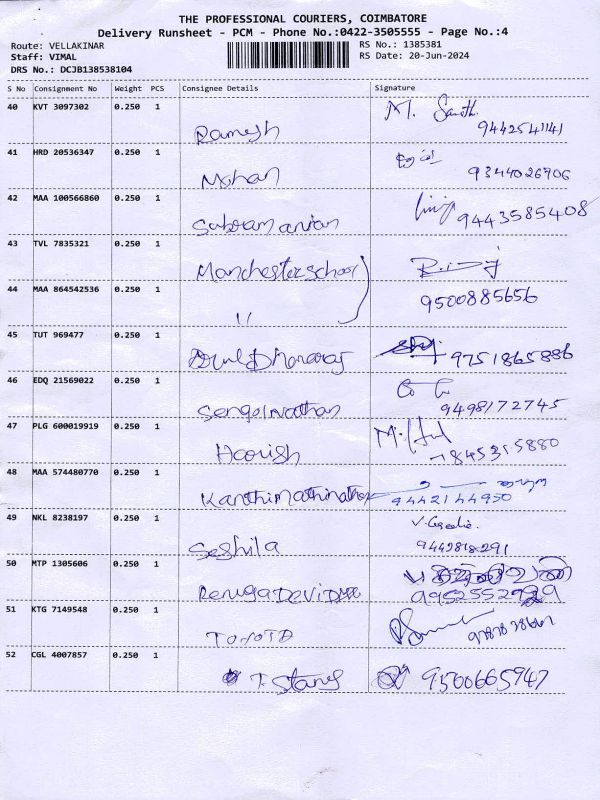 THE PROFESSIONAL COURIERS, COIMBATORE
Delivery Runsheet - PCM - Phone No.:0422-3505555 - Page No.:4
Route: VELLAKINAR RS No.: 1385381
Staff: VIMAL RS Date: 20-Jun-2024
DRS No.: DCJB138538104
S No Consignment No Weight PCS Consignee Details Signature
40 KVT 3097302 0.250 1
Ramesh 9442541141
41 HRD 20536347 0.250 1
Mohan 9344026706
42 MAA 100566860 0.250 1
Subramanian 9443585408
43 TVL 7835321 0.250 1
Manchester school
44 MAA 864542536 0.250 1 9500885656
11
45 TUT 969477 0.250 1
9751865886
46 EDQ 21569022 0.250 1
Sengolnathan 9498172745
47 PLG 600019919 0.250 1
Harish 7845315880
48 MAA 574480770 0.250 1
Kanthimathinathan 9442144950
49 NKL 8238197 0.250 1
Seshila 9442818291
50 MTP 1305606 0.250 1
Renuga Devi
51 KTG 7149548 0.250 1
TOYOTA
52 CGL 4007857 0.250 1
T. Stany 9500665947